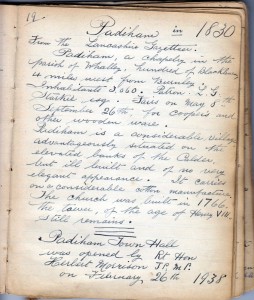 19
Padiham in 1830
From the Lancashire Gazetteer.
Padiham, a chapelry in the
parish of Whalley, hundred of Blackburn
4 miles west from Burnley
Inhabitants 3060. Patron L. G.
Starkie esq. Fairs on May 8th
September 26th for coopers and
other wooden ware.
Padiham is a considerable village
advantageously situated on the
elevated banks of the Calder.
but ill built and of no very
elegant appearance. It carries
on a considerable cotton manufacture
The church was built in 1766.
the tower, of the age of Henry VIII.
still remains.
Padiham Town Hall
was opened by Rt Hon
Herbert Morrison J.P. M.P.
on February 26th 1938